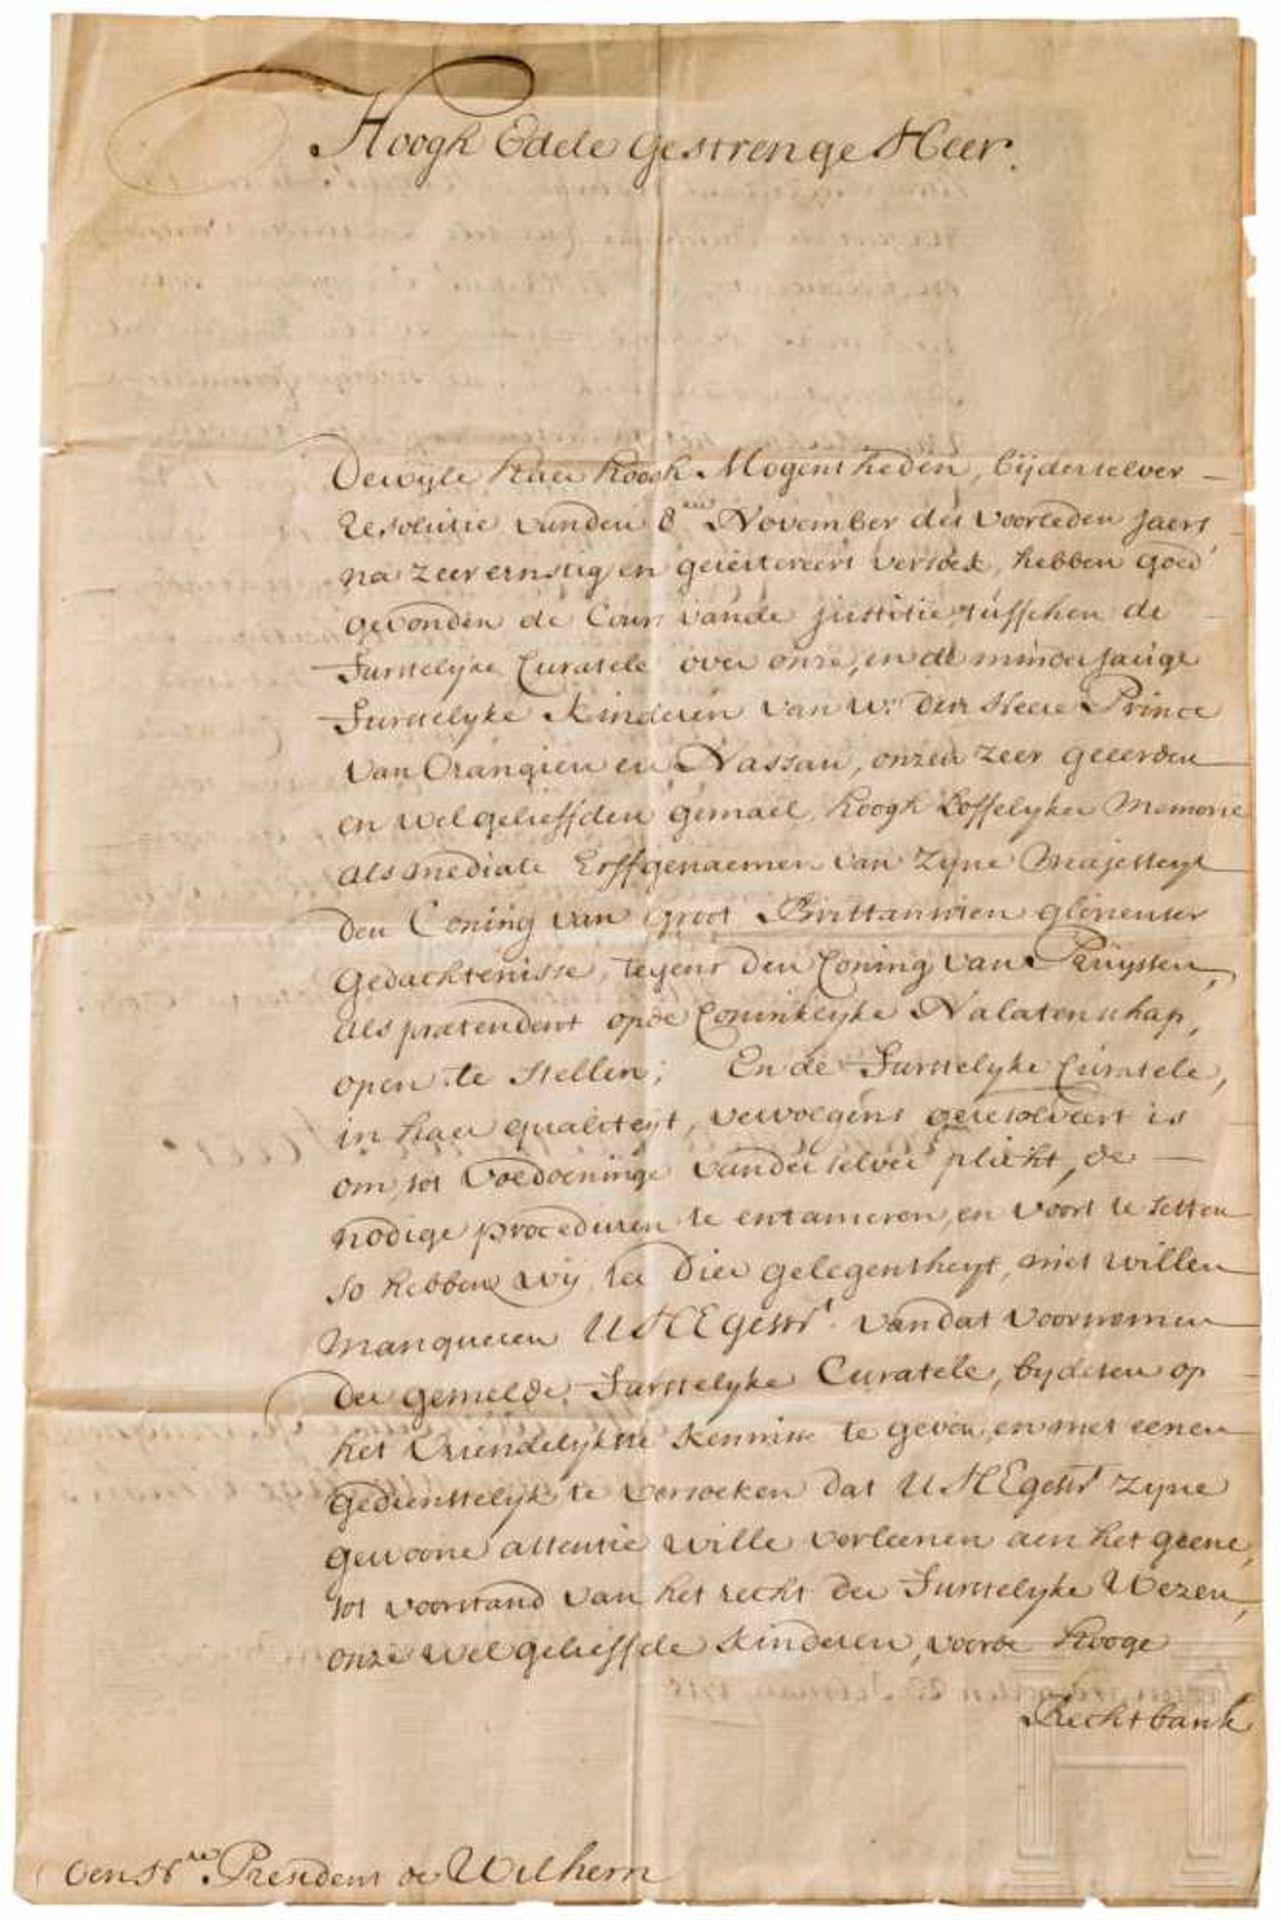 Hoogh Edele Gestrenge Heer.
Dewyle haer Hoogh Mogentheden, bijderselver
Resolutie vanden 8en November des voorleden Jaers,
na zeer ernstig en gereitereert versoek, hebben goed
gevonden de Cour vande justitie tusschen de
Furstelyke Curatele over onze, en de minderjarige
Furstelyke Kinderen van w: den Heere Prince
van Orangien en Nassau, onzen zeer geeerden
en wel gelieffden gemael, hoogh Loffelyker Memorie
als mediate Erffgenaemen van Zyne Majesteyt
den Coning van Groot Brittannien glorieuser
Gedachtenisse, tegens den Coning van Pruyssen,
als prætendent op de Coninklyke Nalatenschap,
open te stellen; En de Furstelyke Curatele,
in haer qualiteyt, vervolgens geresolveert is
om, tot Voldoeninge van derselver plicht, de
nodige proceduren te entameren, en voort te setten
So hebben wij, ter dier gelegentheyt, niet willen
manqueren UHEgestr. van dat voornemen
der gemelde Furstelyke Curatele, by desen op
het Vriendelykste kennisse te geven, en met eenen
gedienstelyk te versoeken dat UHEgestr zyne
gewoone attentie wille verleenen aen het geene,
tot voorstand van het recht der Furstelyke Wezen,
onze wel gelieffde Kinderen, voor de Hooge
Rechtbank
den Hre President de Wilhem